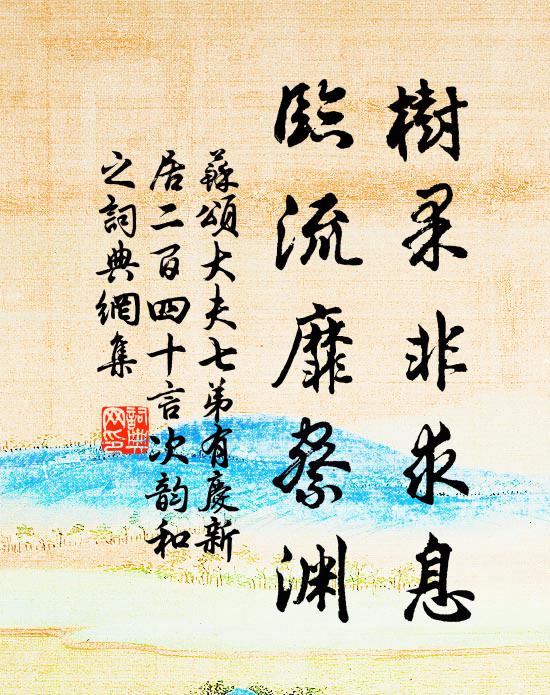 樹果非求息
臨流靡察淵
蘇頌大夫七弟有慶新
居二百四十言次韵和
之詞典網集
詞典網印